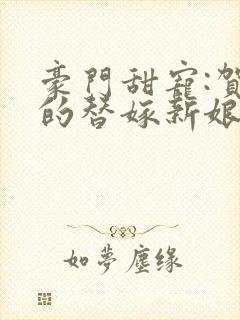 豪門甜寵:賀
的替嫁新娘
如夢塵缘